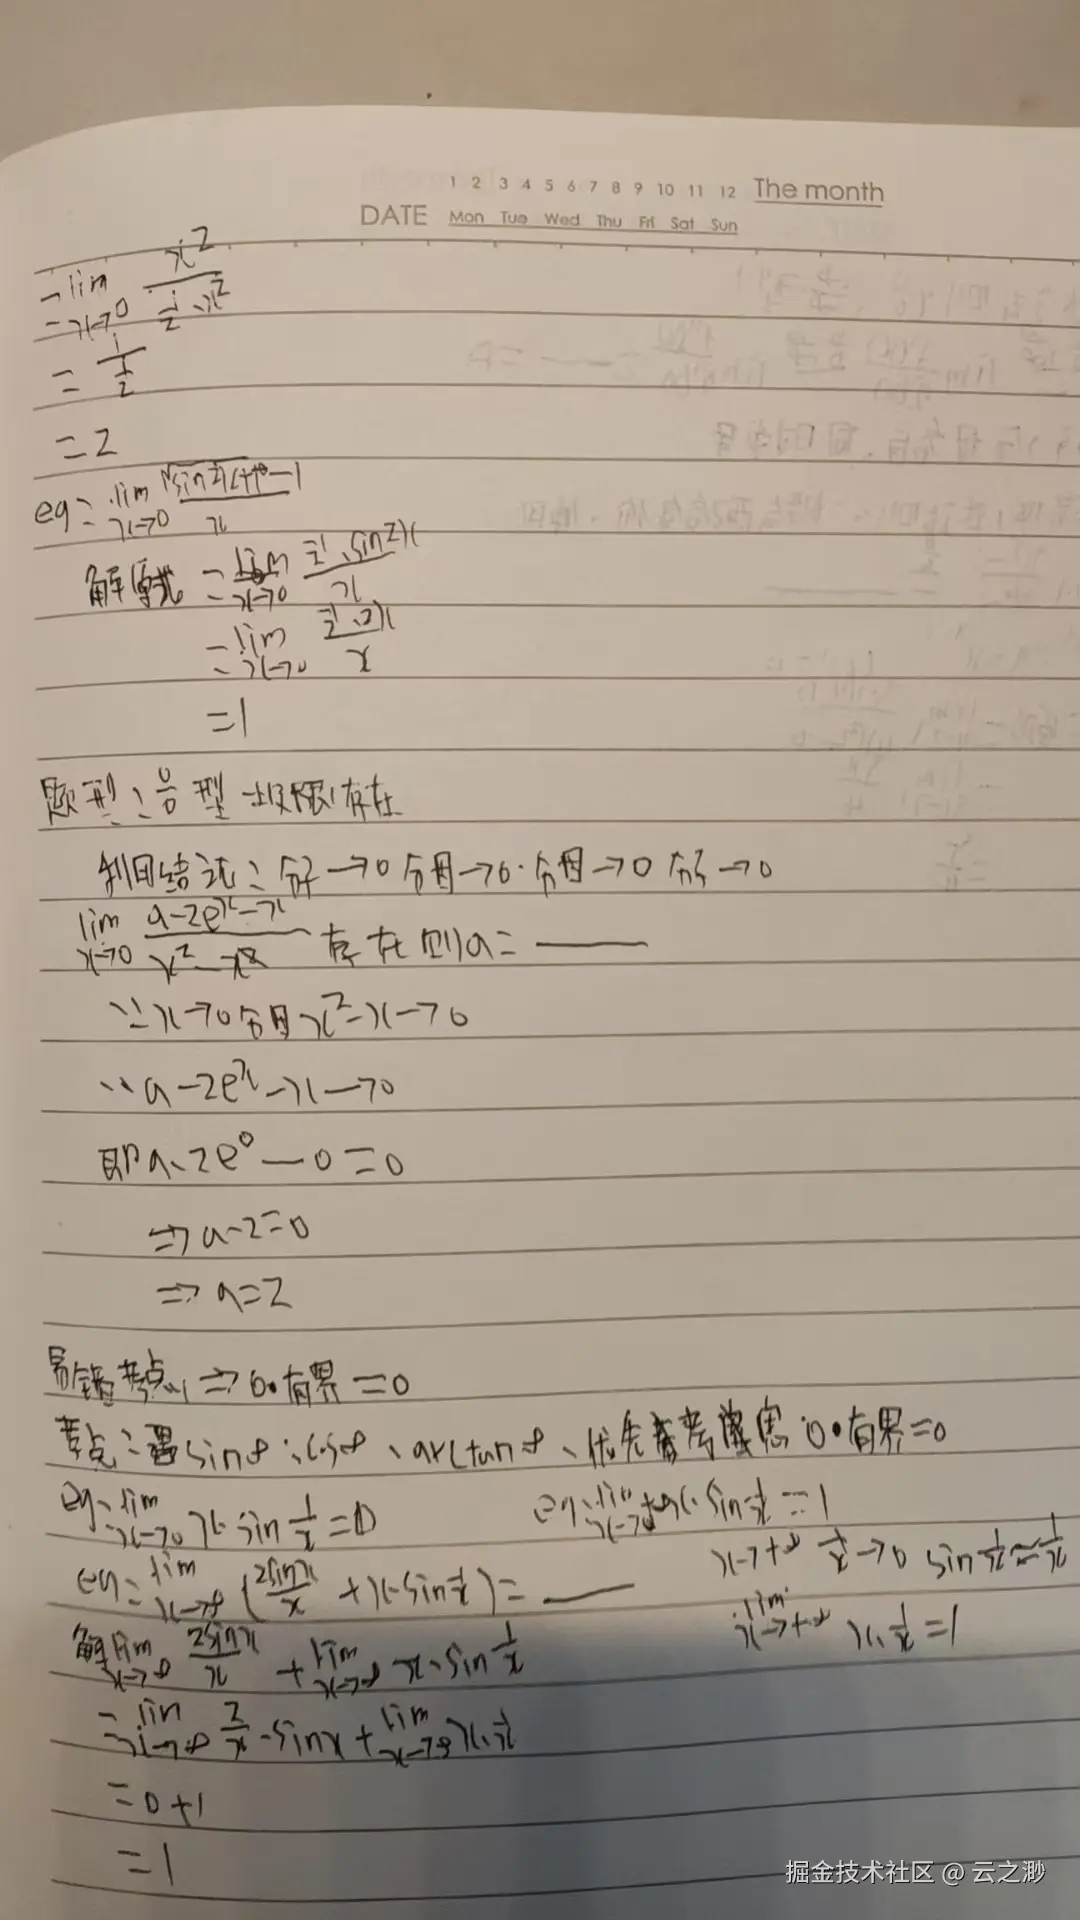 1 2 3 4 5 6 7 8 9 10 11 12 The month
DATE Mon Tue Wed Thu Fri Sat Sun
= lim x→0 x² / (1/2 · x²)
= 1 / (1/2)
= 2
eg: lim x→0 (√(sin2x+1) - 1) / x
解原式 = lim x→0 (1/2 · sin2x) / x
= lim x→0 (1/2 · 2x) / x
= 1
题型: 0/0 型 极限存在
利用结论: 分子→0 分母→0. 分母→0 分子→0
lim x→0 (a-2eˣ-x) / (x²-x) 存在则a= ____
∵ x→0 分母 x²-x→0
∵ a-2eˣ-x→0
即 a-2e⁰-0=0
⇒ a-2=0
⇒ a=2
易错考点 ⇒ 0·有界=0
考点: 遇 sin∞、cos∞、arctan∞、优先考虑 0·有界=0
eg: lim x→0 x·sin 1/x = 0
eg: lim x→+∞ x·sin 1/x = 1
x→+∞ 1/x→0 sin 1/x ≈ 1/x
lim x→+∞ x·1/x = 1
eg: lim x→∞ (2sinx/x + x·sin 1/x) = ____
解 lim x→∞ 2sinx/x + lim x→∞ x·sin 1/x
= lim x→∞ 2/x · sinx + lim x→∞ x·1/x
= 0+1
= 1
掘金技术社区 @ 云之渺